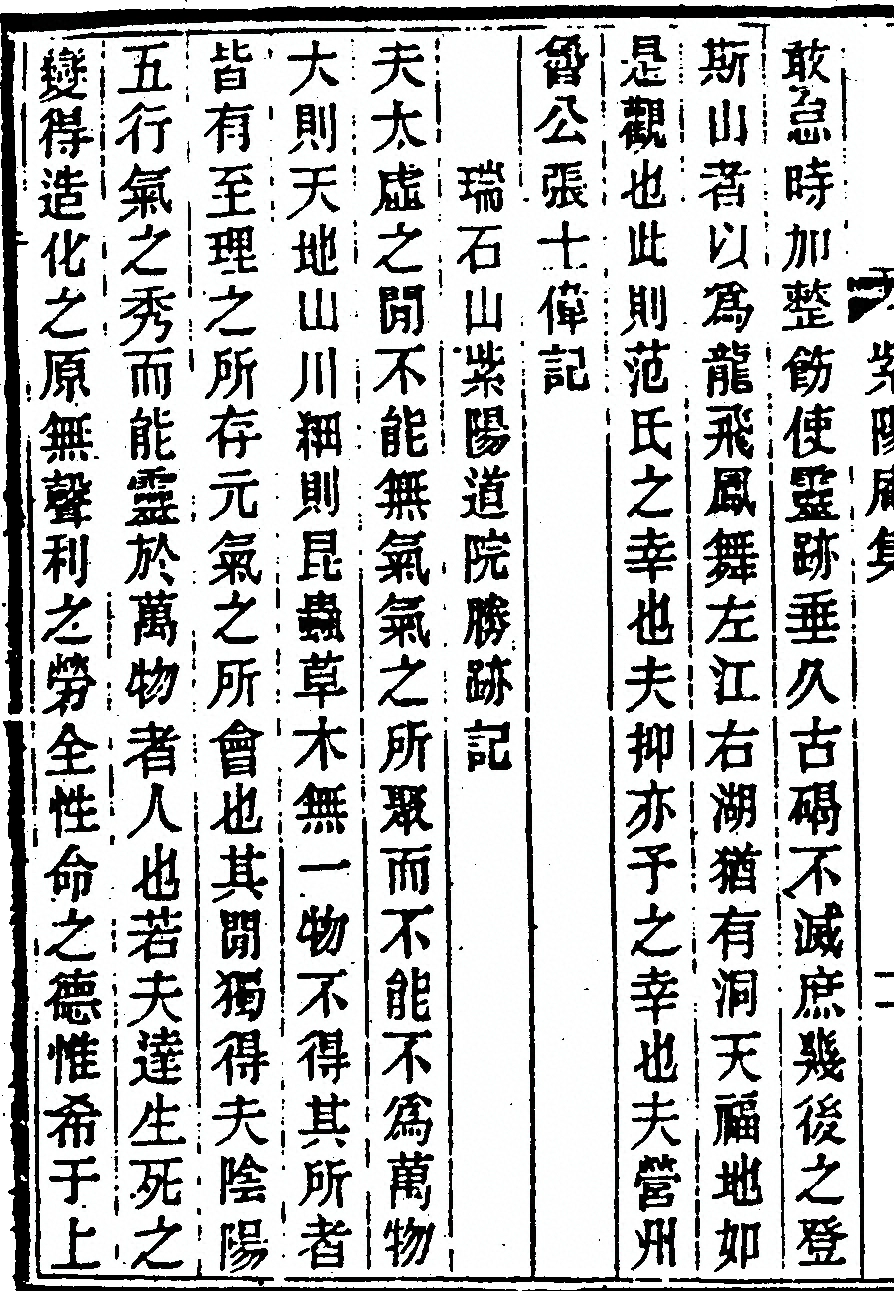 紫陽庵集
敢怠時加整飭使靈跡垂久古碣不滅庶幾後之登
斯山者以爲龍飛鳳舞左江右湖猶有洞天福地如
是觀也此則范氏之幸也夫抑亦予之幸也夫營州
魯公張士偉記
瑞石山紫陽道院勝跡記
夫太虛之間不能無氣氣之所聚而不能不爲萬物
大則天地山川細則昆蟲草木無一物不得其所者
皆有至理之所存元氣之所會也其間獨得夫陰陽
五行氣之秀而能靈於萬物者人也若夫達生死之
變得造化之原無聲利之勞全性命之德惟希于上